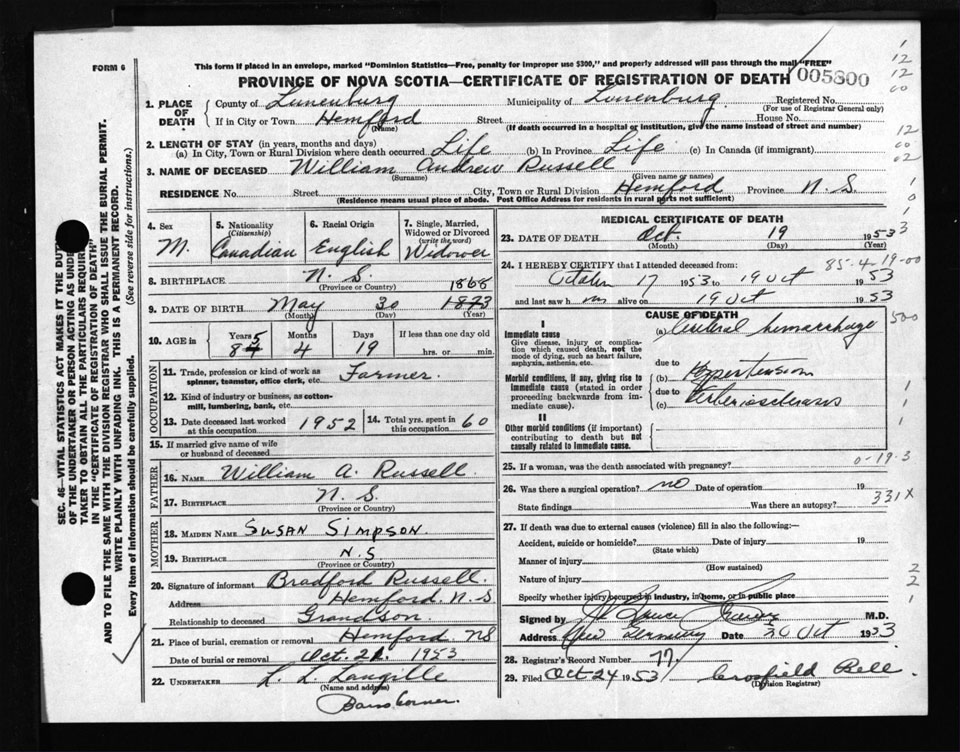 FORM 6
This form if placed in an envelope, marked "Dominion Statistics—Free, penalty for improper use $300," and properly addressed will pass through the mail "FREE"
PROVINCE OF NOVA SCOTIA—CERTIFICATE OF REGISTRATION OF DEATH 005800
1. PLACE OF DEATH County of Lunenburg Municipality of Lunenburg Registered No.
(For use of Registrar General only)
If in City or Town Hemford Street House No.
(Name) (If death occurred in a hospital or institution, give the name instead of street and number)
2. LENGTH OF STAY (in years, months and days)
(a) In City, Town or Rural Division where death occurred Life (b) In Province Life (c) In Canada (if immigrant)
3. NAME OF DECEASED William Andrew Russell
(Surname) (Given name or names)
RESIDENCE No. Street City, Town or Rural Division Hemford Province N.S.
(Residence means usual place of abode. Post Office Address for residents in rural parts not sufficient)
4. Sex M.
5. Nationality (Citizenship) Canadian
6. Racial Origin English
7. Single, Married, Widowed or Divorced (write the word) Widower
8. BIRTHPLACE N.S.
(Province or Country)
1868
9. DATE OF BIRTH May 30 1873
(Month) (Day) (Year)
10. AGE in Years Months Days If less than one day old
85 4 19 hrs. or min.
OCCUPATION
11. Trade, profession or kind of work as spinner, teamster, office clerk, etc. Farmer.
12. Kind of industry or business, as cotton-mill, lumbering, bank, etc.
13. Date deceased last worked at this occupation 1952
14. Total yrs. spent in this occupation 60
15. If married give name of wife or husband of deceased
FATHER
16. NAME William A. Russell
17. BIRTHPLACE N.S.
(Province or Country)
MOTHER
18. MAIDEN NAME SUSAN SIMPSON.
19. BIRTHPLACE N.S
(Province or Country)
20. Signature of informant Bradford Russell.
Address Hemford. N.S
Relationship to deceased Grandson.
21. Place of burial, cremation or removal Hemford NS
Date of burial or removal Oct. 21. 1953
22. UNDERTAKER L. L. Langille
(Name and address)
Barss Corner.
MEDICAL CERTIFICATE OF DEATH
23. DATE OF DEATH Oct. 19 1953
(Month) (Day) (Year)
24. I HEREBY CERTIFY that I attended deceased from: 85-4-19-00
October 17 1953 to 19 Oct 1953
and last saw h im alive on 19 Oct 1953
CAUSE OF DEATH
I
Immediate cause
Give disease, injury or complication which caused death, not the mode of dying, such as heart failure, asphyxia, asthenia, etc.
(a) Cerebral hemorrhage
due to
Morbid conditions, if any, giving rise to immediate cause (stated in order proceeding backwards from immediate cause).
(b) Hypertension
due to
(c) Arteriosclerosis
II
Other morbid conditions (if important) contributing to death but not causally related to immediate cause.
25. If a woman, was the death associated with pregnancy? 0-19-3
26. Was there a surgical operation? no Date of operation 19
State findings Was there an autopsy? 331X
27. If death was due to external causes (violence) fill in also the following:—
Accident, suicide or homicide? Date of injury 19
(State which)
Manner of injury
(How sustained)
Nature of injury
Specify whether injury occurred in industry, in home, or in public place
Signed by M.D.
Address New Germany Date 20 Oct 1953
28. Registrar's Record Number 77.
29. Filed Oct-24 1953 Crossfield Bell
(Division Registrar)
SEC. 46—VITAL STATISTICS ACT MAKES IT THE DUTY
OF THE UNDERTAKER OR PERSON ACTING AS UNDER
TAKER TO OBTAIN ALL THE PARTICULARS REQUIR
IN THE "CERTIFICATE OF REGISTRATION OF DEATH"
AND TO FILE THE SAME WITH THE DIVISION REGISTRAR WHO SHALL ISSUE THE BURIAL PERMIT.
WRITE PLAINLY WITH UNFADING INK. THIS IS A PERMANENT RECORD.
Every item of information should be carefully supplied. (See reverse side for instructions.)
12
12
00
12
00
02